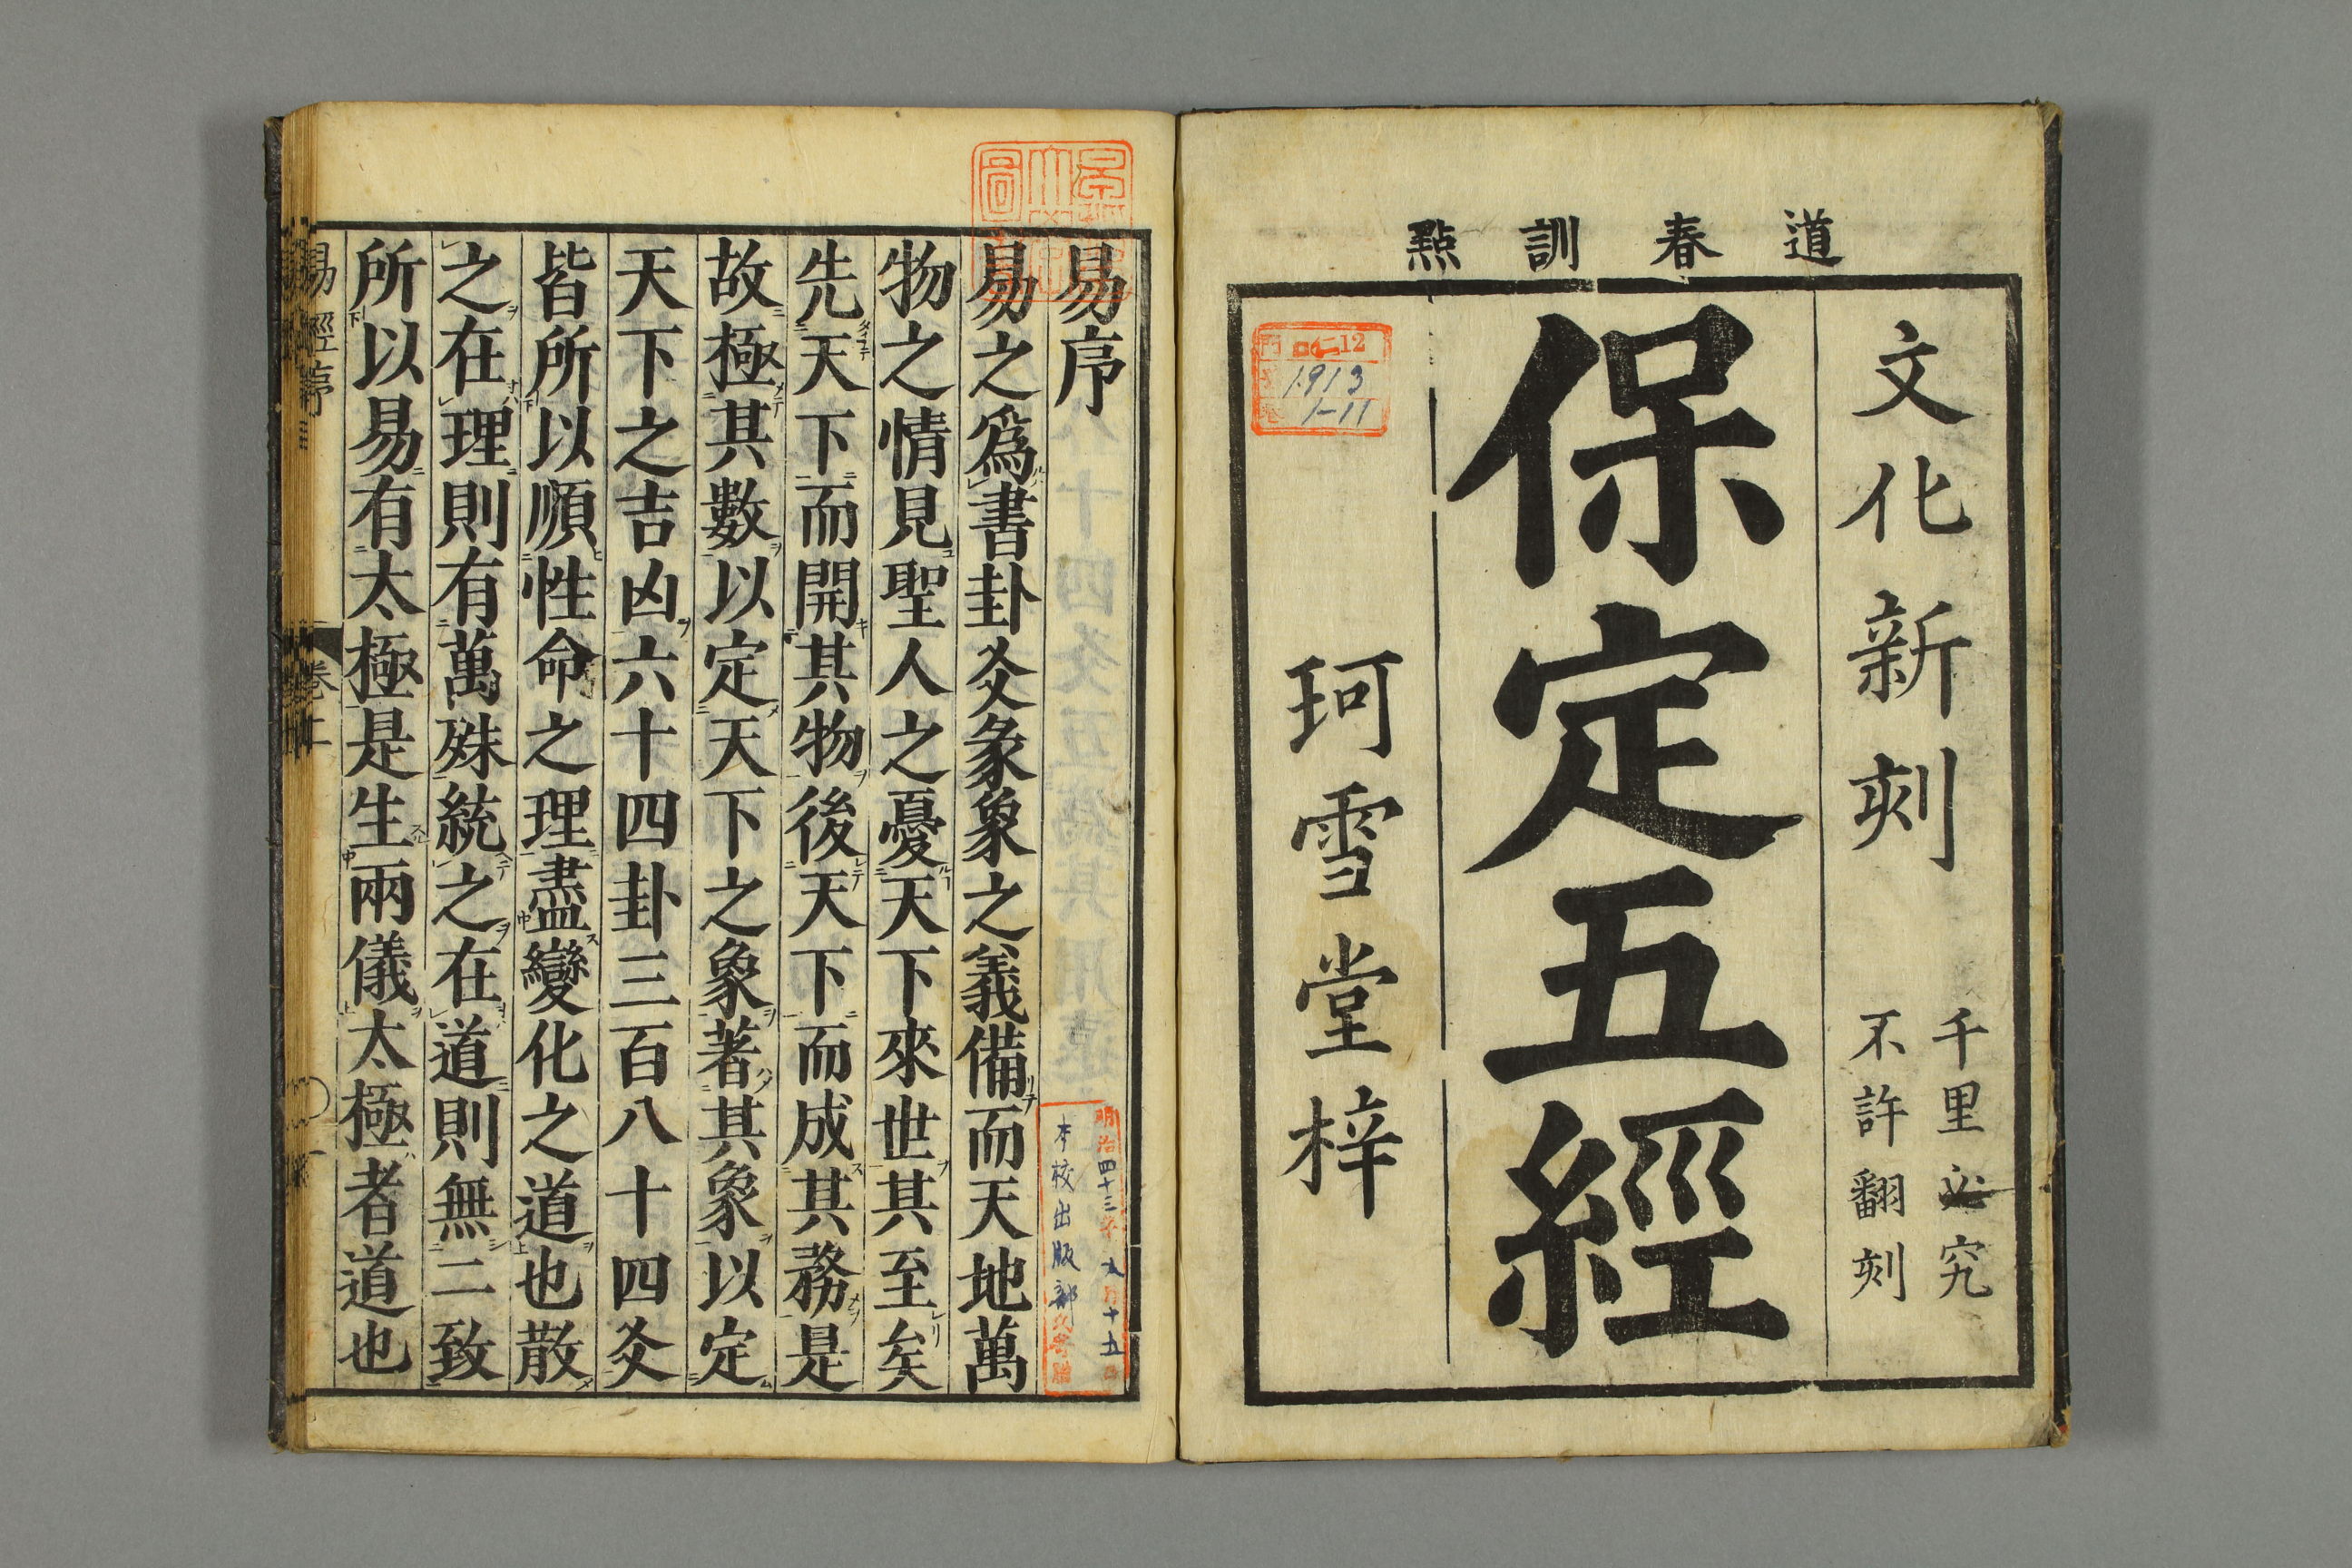 道春訓點
文化新刻
千里必究
不許翻刻
保定五經
珂雪堂梓
12
1913
1-11
易序
易之爲書卦爻彖象之義備而天地萬
物之情見聖人之憂天下來世其至矣
先天下而開其物後天下而成其務是
故極其數以定天下之象著其象以定
天下之吉凶六十四卦三百八十四爻
皆所以順性命之理盡變化之道也散
之在理則有萬殊統之在道則無二致
所以易有太極是生兩儀太極者道也
易經序
卷上
明治四十三年九月十五日
本校出版部